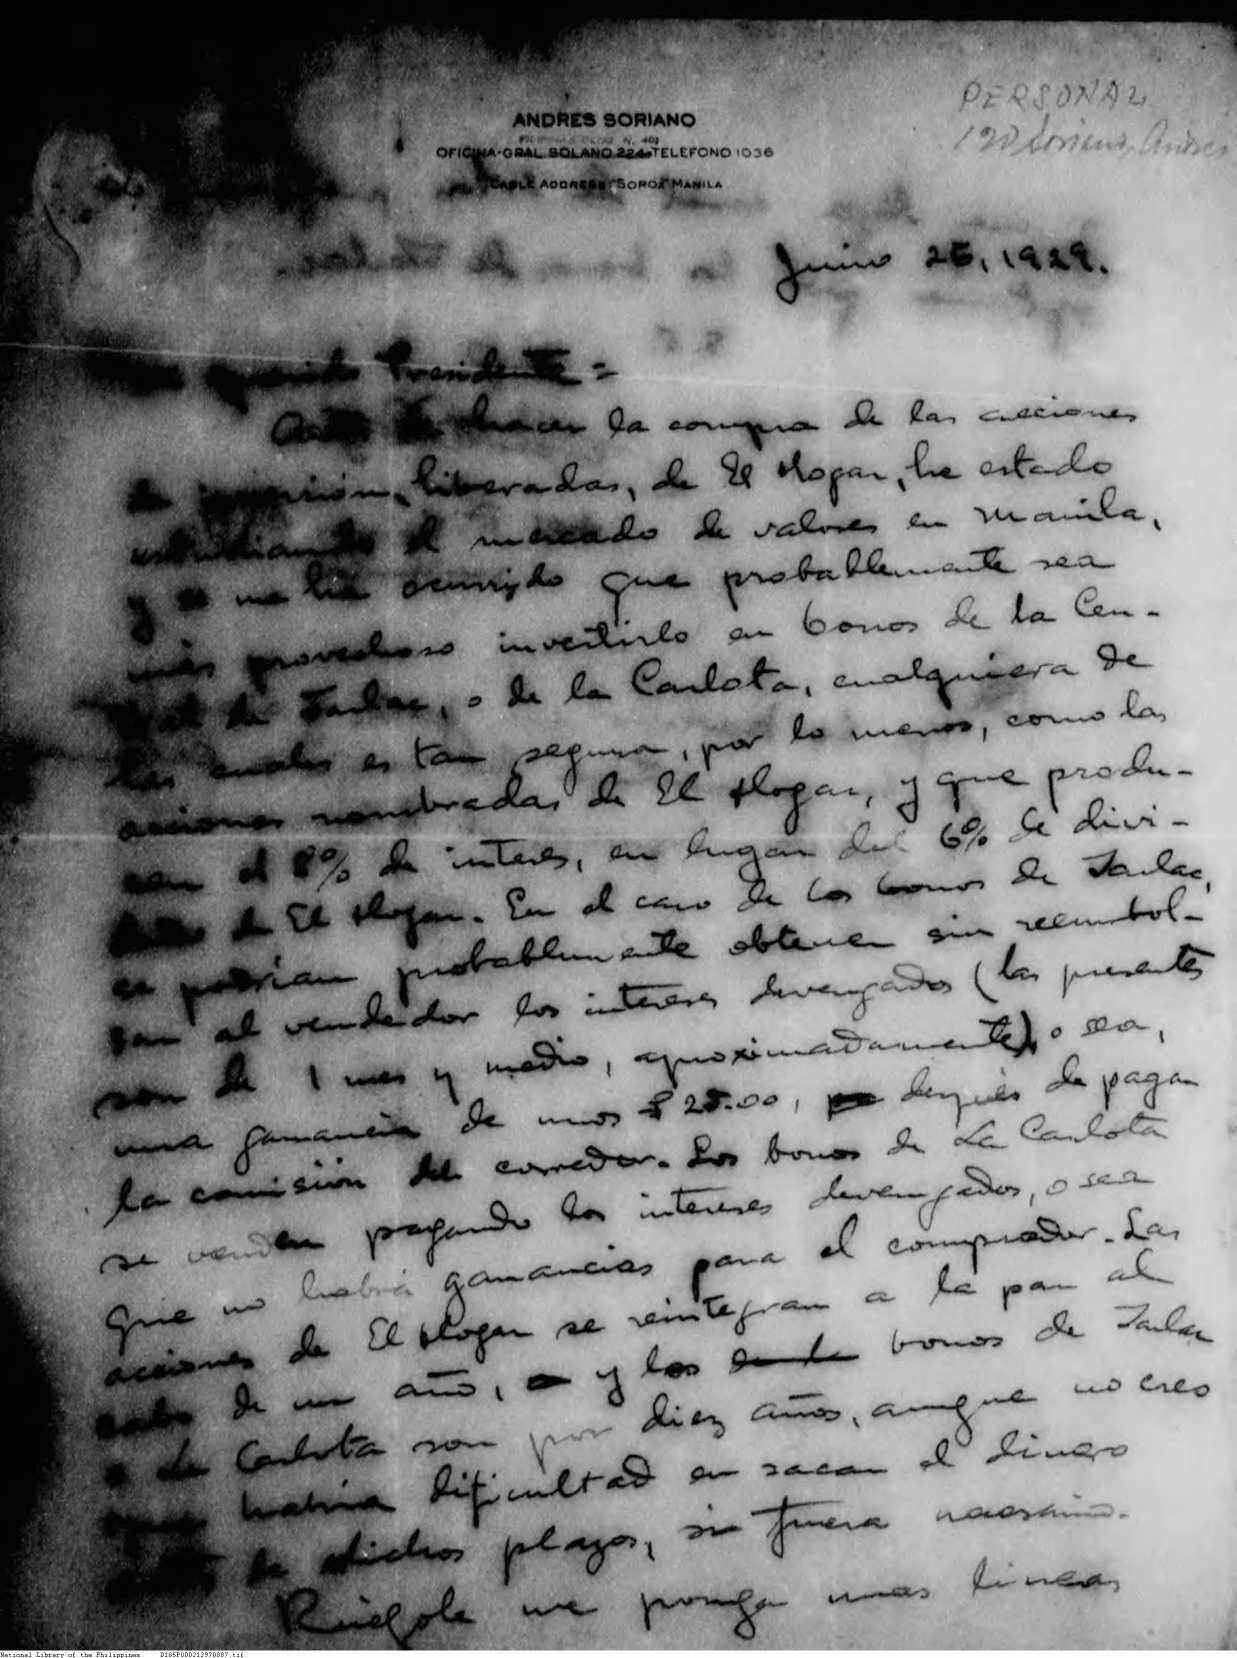 PERSONAL
190 Soriano, Andres
ANDRES SORIANO
OFICINA-GRAL. SOLANO 224-TELEFONO 1036
CABLE ADDRESS: "SOROX" MANILA
Junio 25, 1929.
querido Presidente =
Antes de hacer la compra de las acciones
de inversión, liberadas, de El Hogar, he estado
estudiando el mercado de valores en Manila,
y se me ha ocurrido que probablemente sea
más provechoso invertirlo en bonos de la Cen-
tral de Tarlac, o de la Carlota, cualquiera de
las cuales es tan segura, por lo menos, como las
acciones nombradas de El Hogar, y que produ-
cen el 8% de interes, en lugar del 6% de divi-
de El Hogar. En el caso de los bonos de Tarlac,
se podrían probablemente obtener sin reembol-
sar al vendedor los intereses devengados (los presentes
son de 1 mes y medio, aproximadamente), o sea,
una ganancia de unos ₱ 25.00, despues de pagar
la comisión del corredor. Los bonos de La Carlota
se venden pagando los intereses devengados, o sea
que no habrá ganancias para el comprador. Las
acciones de El Hogar se reintegran a la par al
cabo de un año, y los bonos de Tarlac
o La Carlota son por diez años, aunque no creo
habria dificultad en sacar el dinero
antes de dichos plazos, si fuera necesario.
Ruégole me ponga unas lineas
National Library of the Philippines D185P000212970887.tif